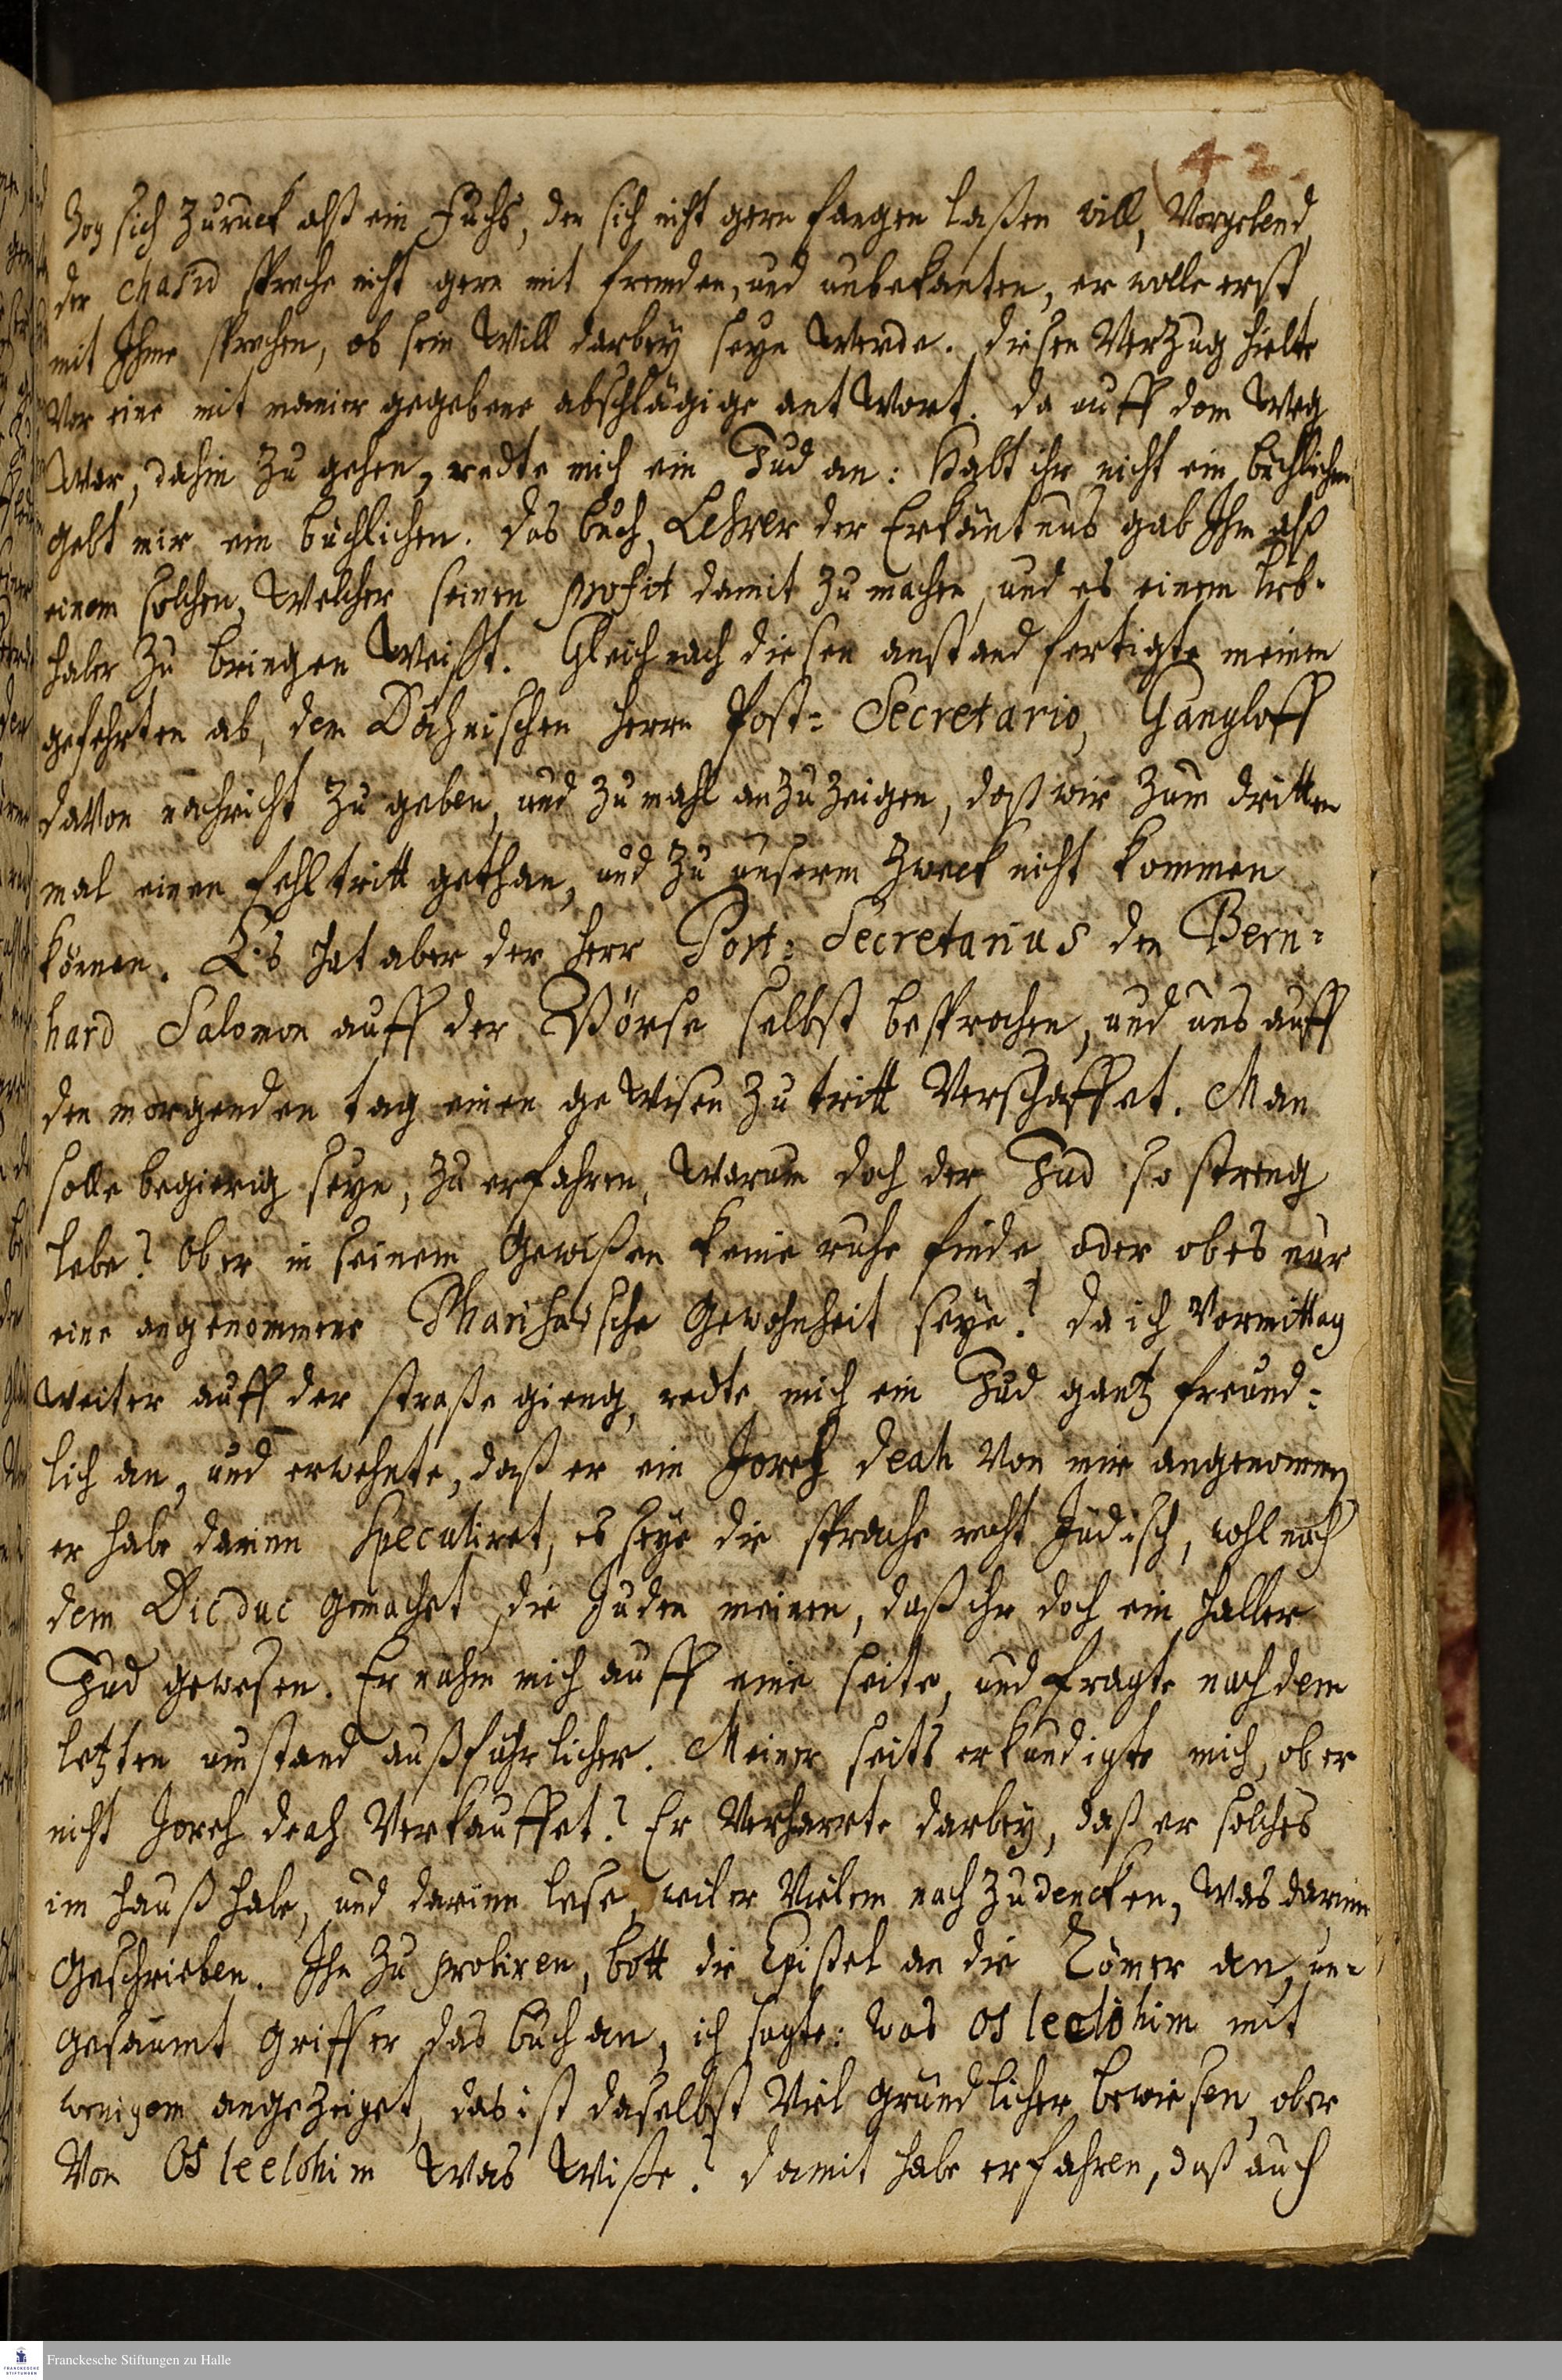 42.
zog sich zuruck alß ein Fuchs, der sich nicht gern fangen laßen will, Vorgebend,
der chasid spreche nicht gern mit fremden, und unbekanten, er wolle erst
mit Ihme sprechen, ob sein Will darbey seyn Werde. diesen Verzug hielte
Vor eine mit manier gegebene abschlägige antWort. da auff dem Weg
War, dahin zu gehen, redte mich ein Jud an: Habt ihr nicht ein büchlichen
gebt mir ein büchlichen. das buch, Lehrer der Erkäntnus gab Ihm alß
einem solchen, Welcher seinen profit damit zu machen, und es einem lieb-
haber zu bringen Weißt. Gleich nach diesen anstand fertigte meinen
gefehrten ab, dem Dähnischen Herrn Post= Secretario, Gangloff
daVon nachricht zu geben, und zumahl anzuzeigen, daß wir zum dritten
mal einen fehltritt gethan, und zu unserm zweck nicht kommen
können. Es hat aber der Herr Post= Secretarius den Bern=
hard Salomon auff der Börse selbst besprochen, und uns auff
den morgenden tag einen geWisen zutritt Verschaffet. Man
solle begierig seyn, zu erfahren, Warum doch der Jud so streng
lebe? Ob er in seinem Gewißen keine ruhe finde, oder ob es nur
eine angenommene Pharisäische Gewohnheit seye? da ich Vormittag
Weiter auff der straße gieng, redte mich ein Jud gantz freund=
lich an, und erwehnte, daß er ein Joreh deah Von mir angenommen
er habe darinn speculiret, es seye die sprache recht Jüdisch, wohl nach
dem Dicduc gemachet, die Juden meinen, daß ihr doch ein Haller
Jud gewesen. Er nahm mich auff eine seite, und fragte nach dem
letzten umstand außführlicher. Meiner seits erkundigte mich, ob er
nicht Joreh deah Verkauffet? Er Verharrte darbey, daß er solches
im Hauß habe, und darinn lese, weil er Vielem nach zudencken, Was darinn
Geschrieben. Ihn zu probiren, bott die Epistel an die Römer an, un-
gesaumt griff er das buch an, ich sagte: Was Or leelohim mit
wenigem angezeiget, das ist daselbst Viel gründlicher bewiesen, ob er
Von Or leelohim Was Wiße? damit habe erfahren, daß auch
Franckesche Stiftungen zu Halle